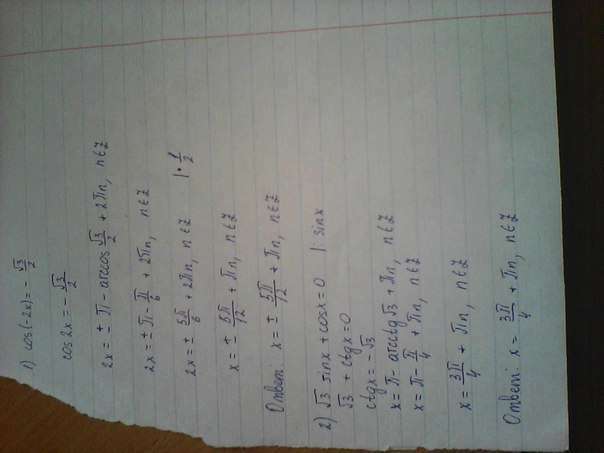 1) cos(-2x) = -√3/2
cos 2x = -√3/2
2x = ± π - arccos √3/2 + 2πn, n∈Z
2x = ± π - π/6 + 2πn, n∈Z
2x = ± 5π/6 + 2πn, n∈Z |· 1/2
x = ± 5π/12 + πn, n∈Z
Ответ: x = ± 5π/12 + πn, n∈Z
2) √3 sinx + cosx = 0 |: sinx
√3 + ctgx = 0
ctgx = -√3
x = π - arcctg√3 + πn, n∈Z
x = π - π/4 + πn, n∈Z
x = 3π/4 + πn, n∈Z
Ответ: x = 3π/4 + πn, n∈Z